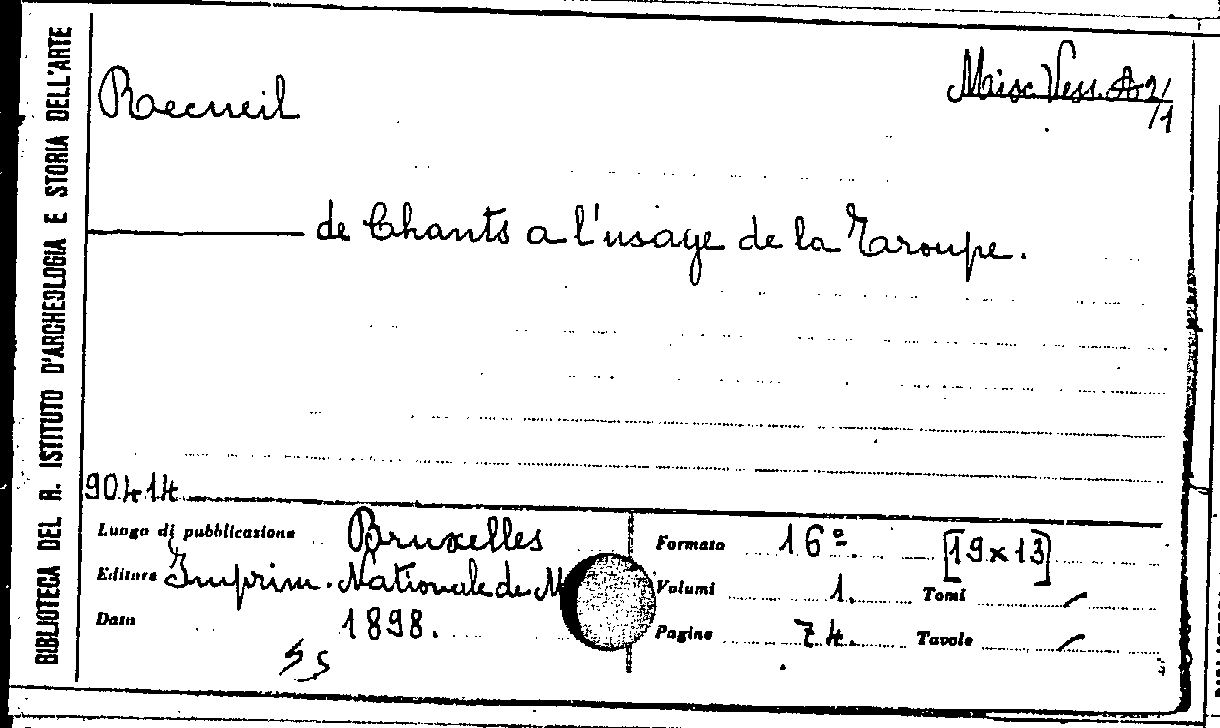 BIBLIOTECA DEL R. ISTITUTO D'ARCHEOLOGIA E STORIA DELL'ARTE
Recueil
Misc. Vess. A 2/
/1
de Chants a l'usage de la Troupe.
90414
Luogo di pubblicazione Bruxelles
Editore Imprim. Nationale de M
Data 1898.
Formato 16º. [19x13]
Volumi 1. Tomi /
Pagine 74. Tavole /